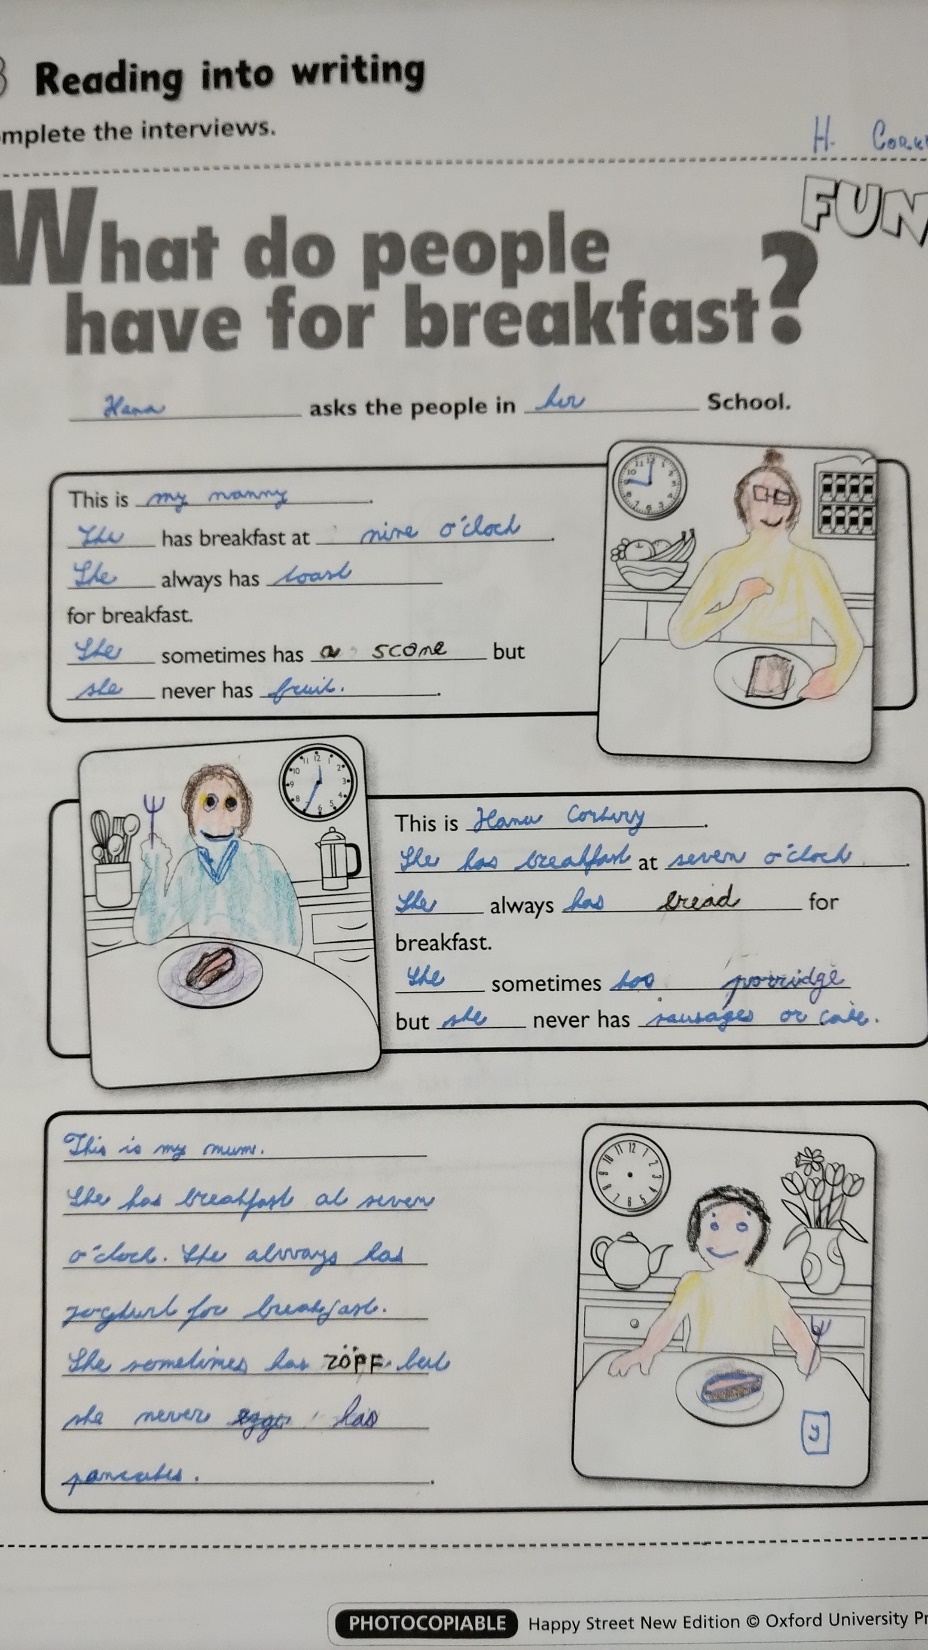 Reading into writing
mplete the interviews.
H.
FUN
What do people
have for breakfast?
Hana asks the people in her School.
This is my nanny.
She has breakfast at nine o'clock.
She always has toast
for breakfast.
She sometimes has a scone but
she never has fruit.
This is Hana
She has breakfast at seven o'clock.
She always has bread for
breakfast.
She sometimes has porridge
but she never has sausages or cake.
This is my mum.
She has breakfast at seven
o'clock. She always has
yoghurt for breakfast.
She sometimes has ZÖPF but
she never eggs has
pancakes.
PHOTOCOPIABLE Happy Street New Edition © Oxford University Pr